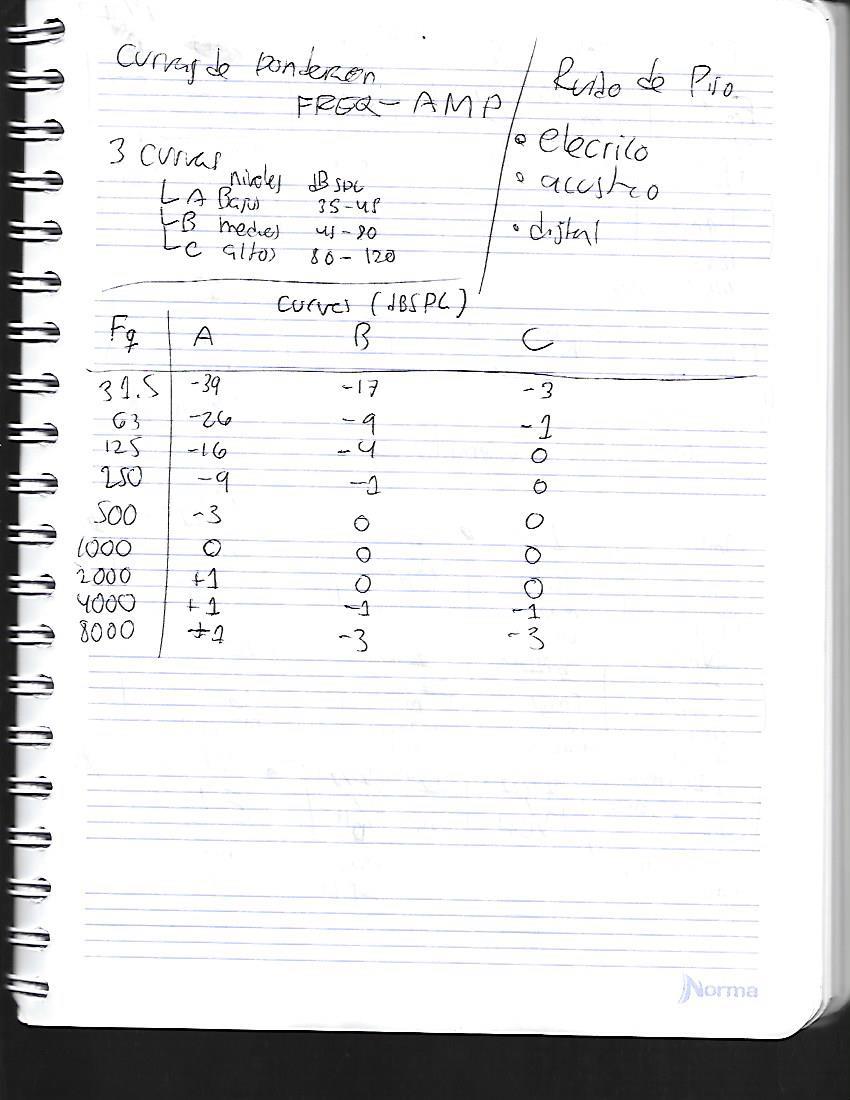 Curvas de Ponderzon
FREQ - AMP
3 Curvas
niveles dBSPL
A Bajos 35-45
B medios 45-80
C altos 80-120
Ruido de Piso
• elecrico
• acustico
• digital
Curvas (dBSPL)
Fq A B C
31.5 -39 -17 -3
63 -26 -9 -1
125 -16 -4 0
250 -9 -1 0
500 -3 0 0
1000 0 0 0
2000 +1 0 0
4000 +1 -1 -1
8000 +1 -3 -3
Norma